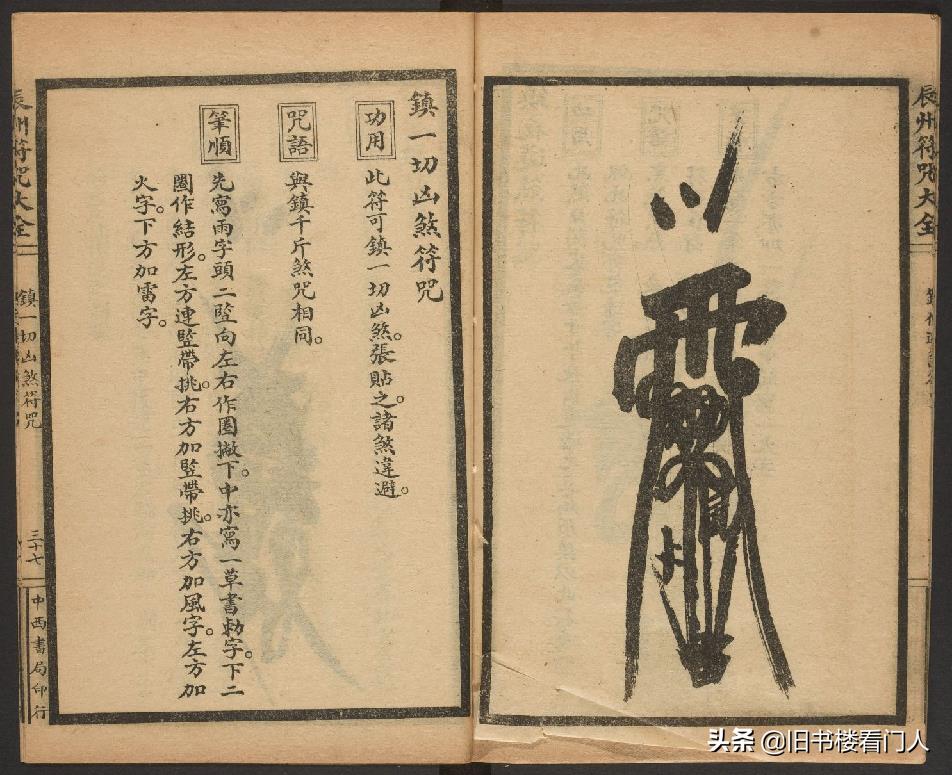 辰州符咒大全
鎮一切凶煞符咒
功用
此符可鎮一切凶煞。張貼之。諸煞違避。
咒語
與鎮千斤煞咒相同。
筆順
先寫雨字頭二竪向左右作圈撇下。中亦寫一草書勅字。下二
圈作結形。左方連竪帶挑。右方加竪帶挑。右方加風字。左方加
火字。下方加雷字。
辰州符咒大全
鎮一切凶煞符咒
三十七
中西書局印行
头条 @旧书楼看门人